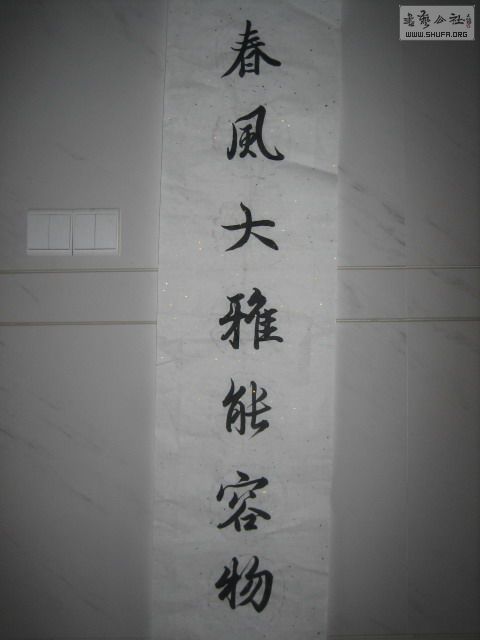 春風大雅能容物
书艺公社
WWW.SHUFA.ORG